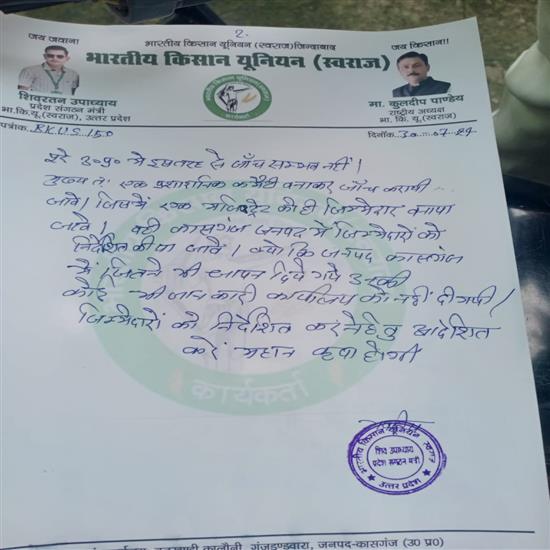 2.
जय जवान!
भारतीय किसान यूनियन (स्वराज) जिन्दाबाद
जय किसान!!
भारतीय किसान यूनियन (स्वराज)
शिवरतन उपाध्याय
प्रदेश संगठन मंत्री
भा.कि.यू.(स्वराज), उत्तर प्रदेश
कार्यकर्ता
मा. कुलदीप पाण्डेय
राष्ट्रीय अध्यक्ष
भा. कि. यू. (स्वराज)
पत्रांक. BKUS/50
दिनाँक. 30.07.24
पूरे उ०प्र० में इस तरह से जाँच सम्भव नहीं।
एक प्रशासनिक कमेटी बनाकर जाँच करायी
जाये। जिसमें एक को ही जिम्मेदार बनाया
जावे। वही कासगंज जनपद में जिम्मेदारों को
निर्देशित की पा जावें। क्यो कि जनपद कासगंज
में जितने भी ज्ञापन दिये गये उनकी
कोई भी जानकारी कार्यालय को नहीं दी गयी।
जिम्मेदारों को निर्देशित करने हेतु आदेशित
करें महान कृपा होगी
कार्यकर्ता
भारतीय किसान यूनियन स्वराज
शिव उपाध्याय
प्रदेश संगठन मंत्री
उत्तर प्रदेश
कालौनी, गंजडुण्डवारा, जनपद-कासगंज (उ0 प्र0)